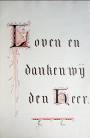 Loven en
danken wij
den Heer.